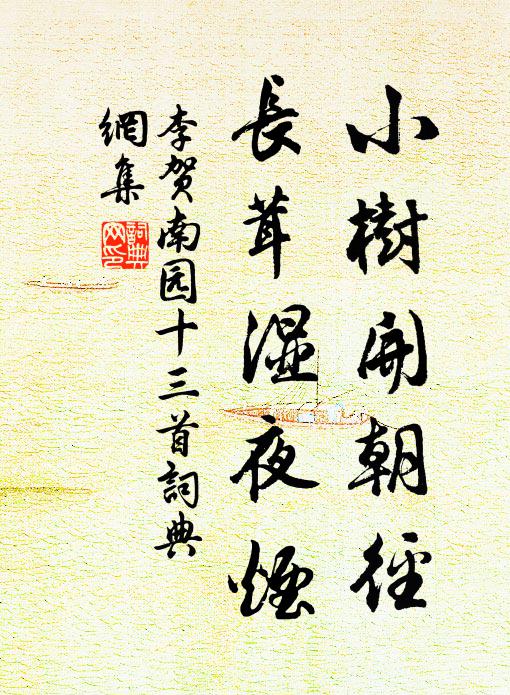 小樹開朝徑
長茸濕夜煙
李贺南园十三首詞典
網集
詞典网印